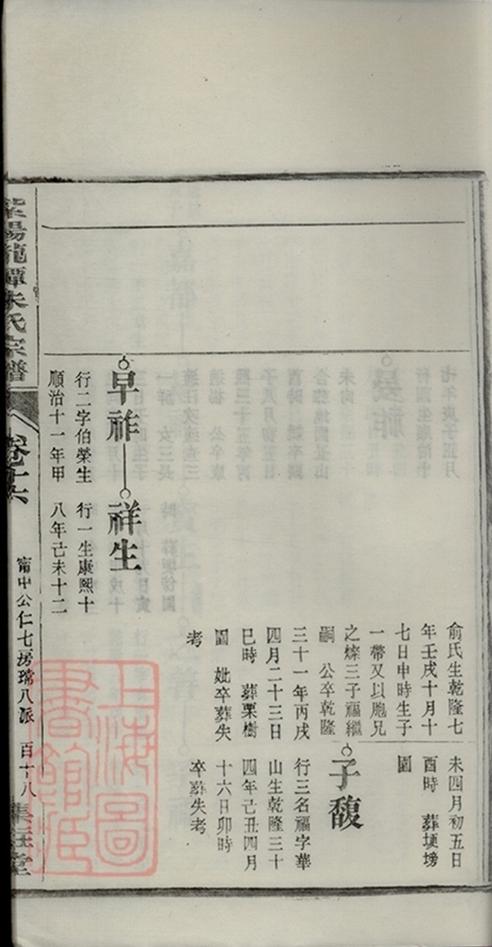 俞氏生乾隆七
年壬戌十月十
七日申時生子
一帶又以胞兄
之燦三子福繼
嗣　公卒乾隆
三十一年丙戌
四月二十三日
巳時　葬栗樹
圖　妣卒葬失
考
未四月初五日
酉時　葬埂塝
圖
子馥
行三名福字華
山生乾隆三十
四年己丑四月
十六日卯時
卒葬失考
早祚
行二字伯榮生
順治十一年甲
祥生
行一生康熙十
八年己未十二
紫陽龍潭朱氏宗譜
卷十六
甯中公仁七房瑞八派　百十八
集
堂
上海圖
書館藏